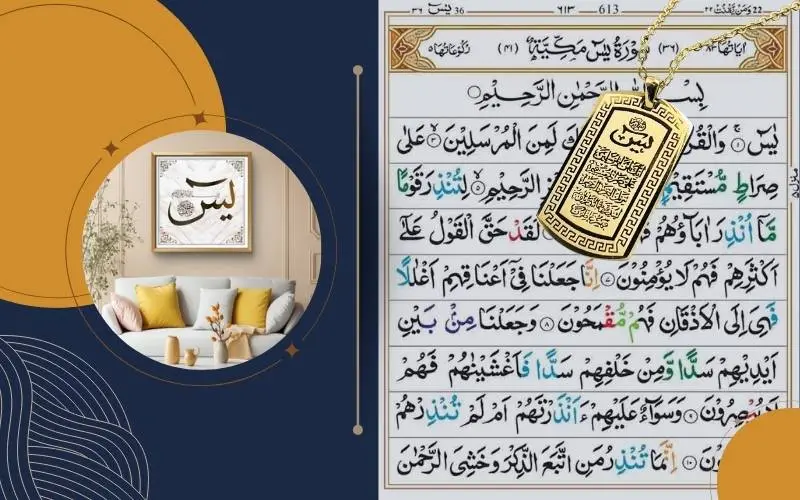 يس
22 وَمَنْ يَّقْنُتْ ٢٢ 613 ٦١٣ 36 يٰسٓ ٣٦
اٰيَاتُهَا ٨٣ (٣٦) سُوْرَةُ يٰسٓ مَكِّيَّةٌ (٤١) رُكُوْعَاتُهَا ٥
الرَّحْمٰنِ الرَّحِيْمِ
يٰسٓ ۝١ لَمِنَ الْمُرْسَلِيْنَ ۝٣ عَلٰى
صِرَاطٍ مُّسْتَقِيْمٍ الرَّحِيْمِ ۝٥ لِتُنْذِرَ قَوْمًا
مَّآ اُنْذِرَ اٰبَآؤُهُمْ لَقَدْ حَقَّ الْقَوْلُ عَلٰٓى
اَكْثَرِهِمْ فَهُمْ لَا يُؤْمِنُوْنَ ۝٧ اِنَّا جَعَلْنَا فِيْٓ اَعْنَاقِهِمْ اَغْلٰلًا
فَهِيَ اِلَى الْاَذْقَانِ فَهُمْ مُّقْمَحُوْنَ ۝٨ وَجَعَلْنَا مِنْۢ بَيْنِ
اَيْدِيْهِمْ سَدًّا وَّمِنْ خَلْفِهِمْ سَدًّا فَاَغْشَيْنٰهُمْ فَهُمْ
لَا يُبْصِرُوْنَ ۝٩ وَسَوَآءٌ عَلَيْهِمْ ءَاَنْذَرْتَهُمْ اَمْ لَمْ تُنْذِرْهُمْ
۝١٠ اِنَّمَا تُنْذِرُ مَنِ اتَّبَعَ الذِّكْرَ وَخَشِيَ الرَّحْمٰنَ
يس